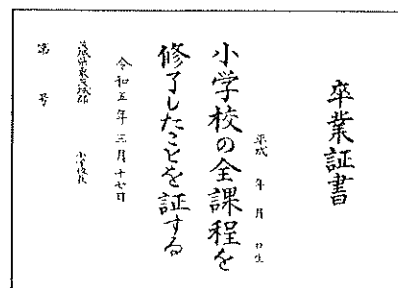 卒業証書
平成　年　月　日生
小学校の全課程を
修了したことを証する
令和五年三月十七日
茨城県東茨城郡
小学校長
第　号